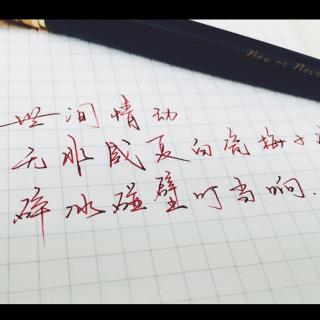 Now or Neve
世间情动.
无非盛夏白瓷梅子
碎冰碰壁叮当响.